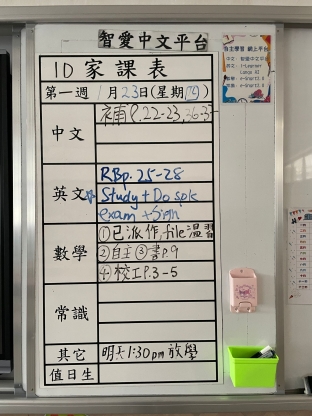 智愛中文平台
1D 家課表
第一週 1月23日(星期四)
中文 補 P.22-23, 36-37
英文 RBp. 25-28
☆ Study + Do spk
exam + Sign
數學 ①已派作,file溫習
②自主 ③書p.9
④校工P.3-5
常識
其它 明天1:30pm 放學
值日生
自主學習 網上平台
中文：智愛中文平台